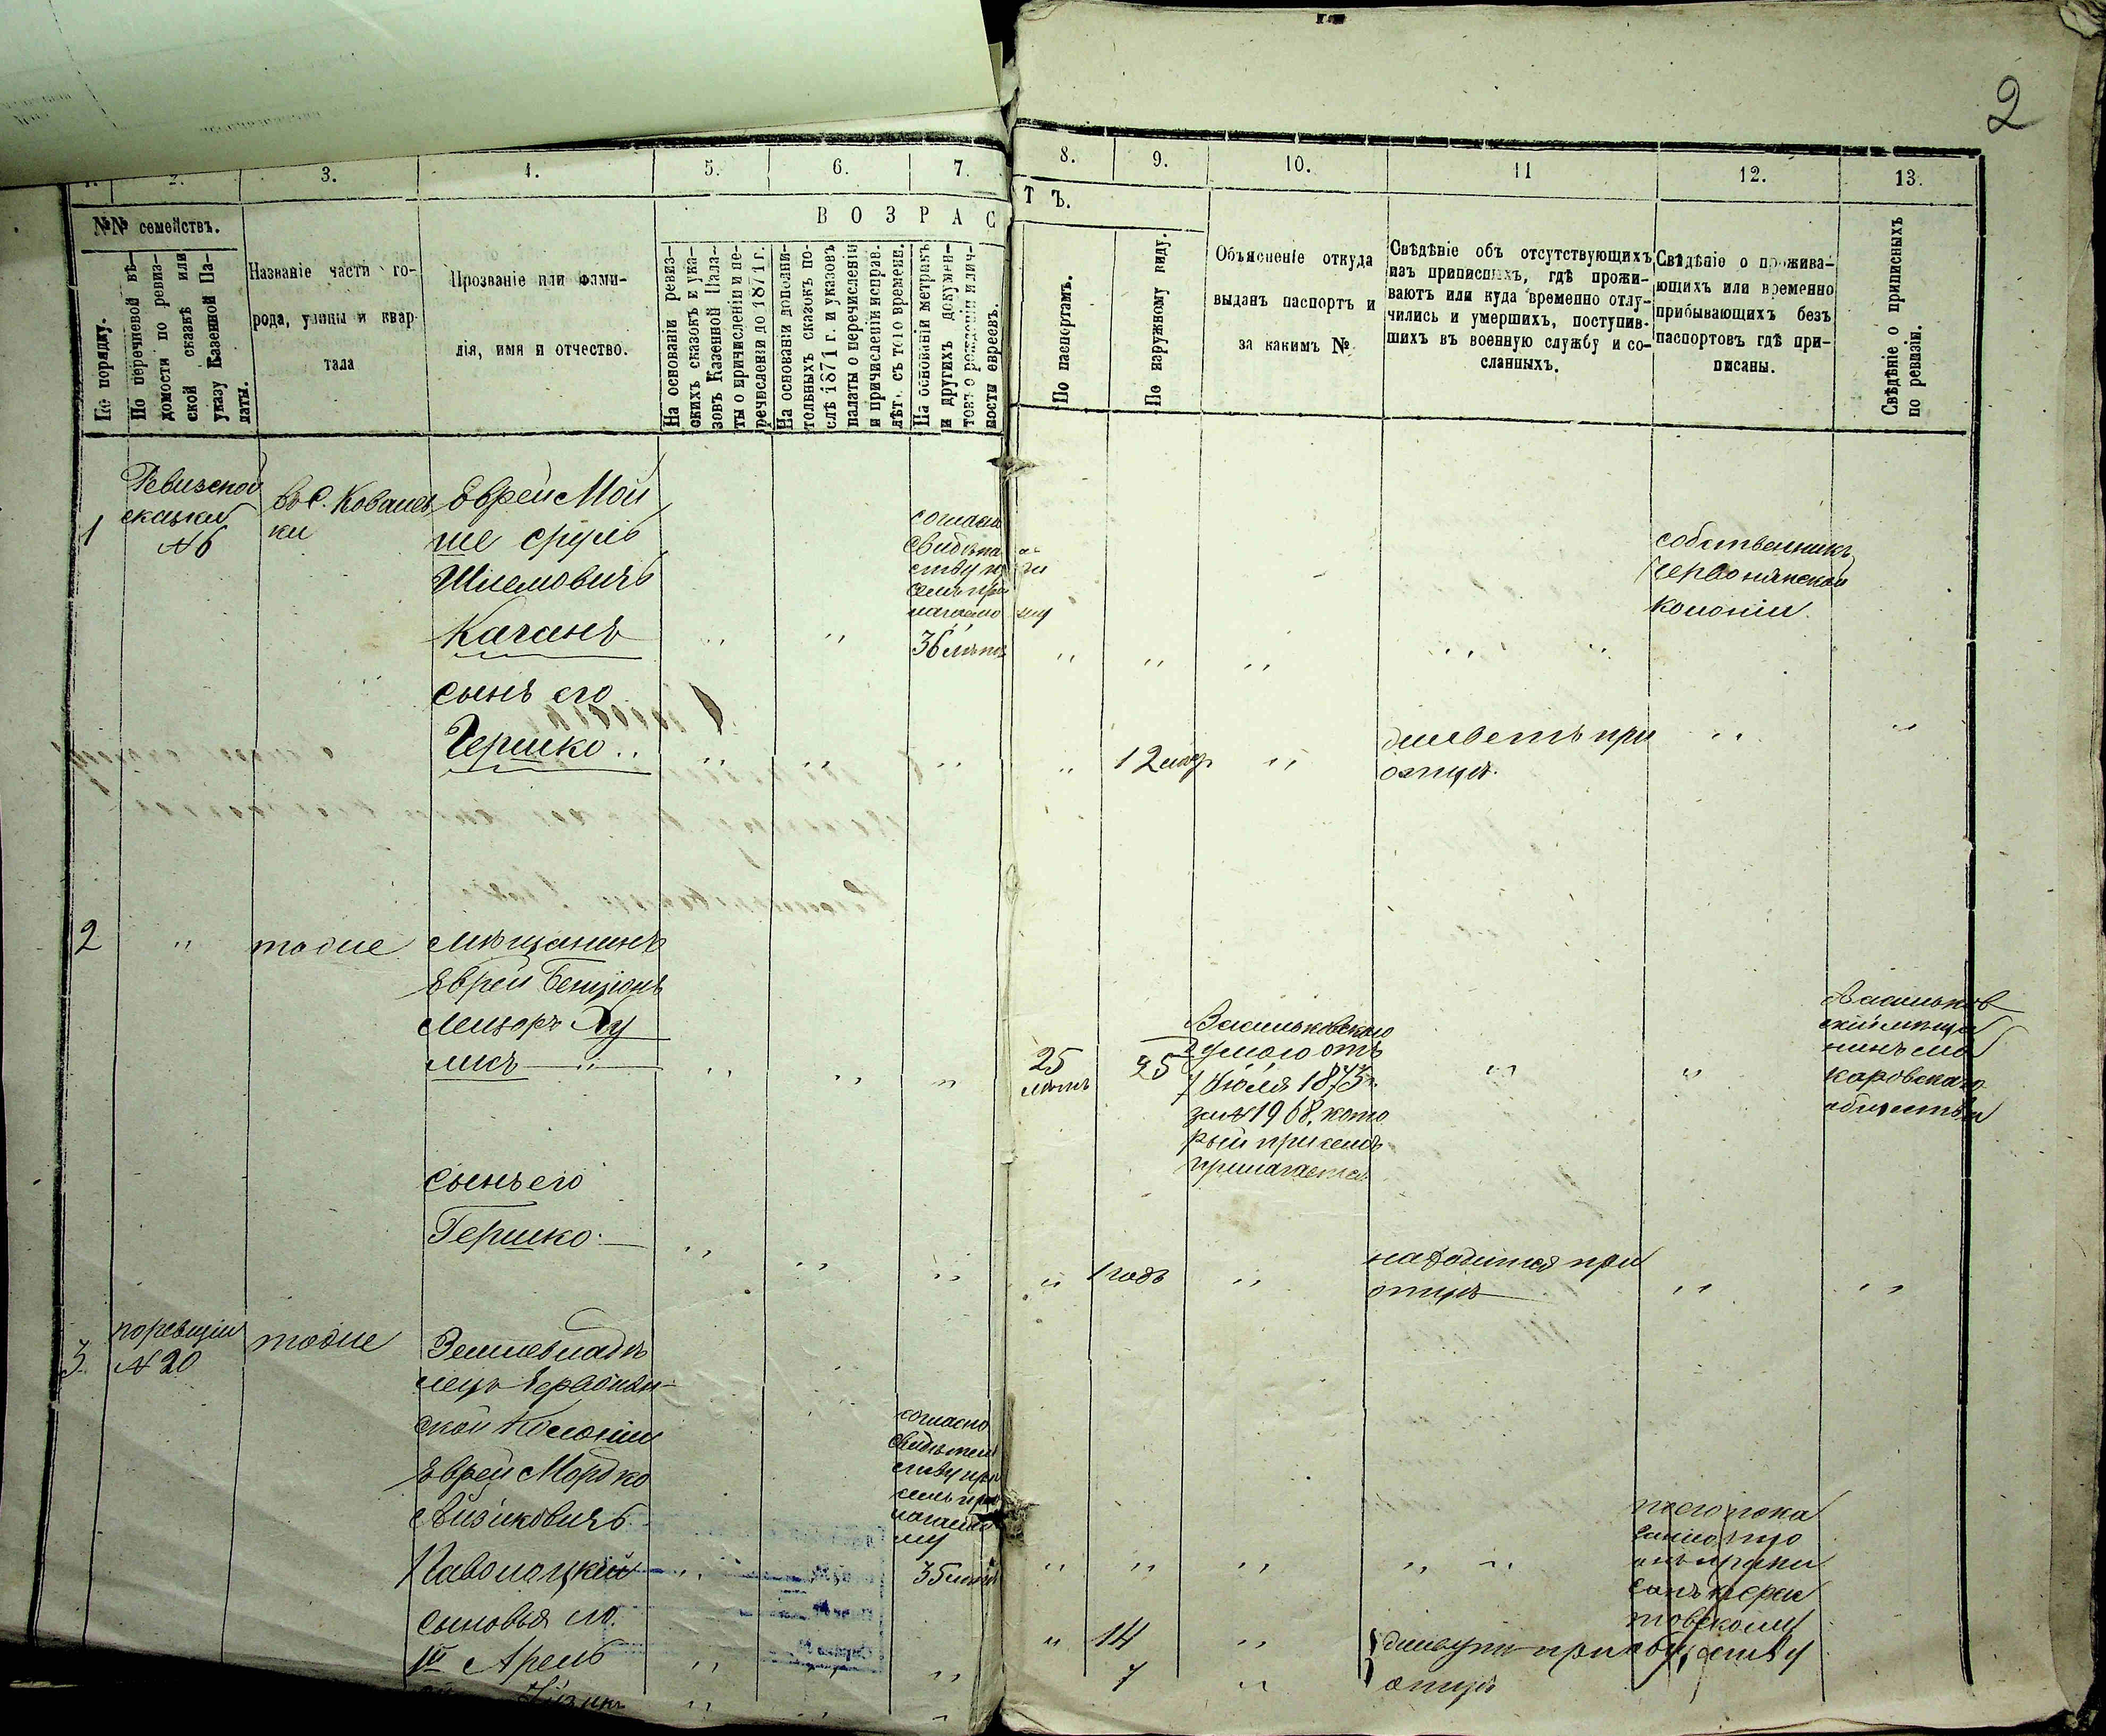 2
1.
2.
3.
4.
5.
6.
7.
8.
9.
10.
11
12.
13.
№№ семействъ.
По порядку.
По перечневой вѣ-
домости по ревиз-
ской сказкѣ или
указу Казенной Па-
латы.
Названіе части го-
рода, улицы и квар-
тала
Прозваніе или фами-
лія, имя и отчество.
В О З Р А С
Т Ъ.
На основаніи ревиз-
скихъ сказокъ и ука-
зовъ Казенной Пала-
ты о причисленіи и пе-
речисленіи до 1871 г.
На основаніи дополни-
тольныхъ сказокъ по-
слѣ 1871 г. и указовъ
палаты о перечисленіи
и причисленіи исправ.
лѣт. съ того времени.
На основаніи метрикъ
и другихъ докумен-
товъ о рожденіи и лич-
ности евреевъ.
По паспортамъ.
По наружному виду.
Объясненіе откуда
выданъ паспортъ и
за какимъ №
Свѣдѣніе объ отсутствующихъ
изъ приписныхъ, гдѣ прожи-
ваютъ или куда временно отлу-
чились и умершихъ, поступив-
шихъ въ военную службу и со-
сланныхъ.
Свѣдѣніе о прожива-
ющихъ или временно
прибывающихъ безъ
паспортовъ гдѣ при-
писаны.
Свѣдѣніе о приписныхъ
по ревизіи.
1
Ревизской
сказки
№6
въ с. Ковалев
ки
Еврей Мой
ше Сруль
Шлемовичъ
Каганъ
согласно
36 лѣтъ
собственникъ
Червонянской
колоніи.
сынъ его
Гершко
12 мѣс
живетъ при
отцѣ.
2
тоже
мѣщанинъ
Еврей Бенціонъ
Лейзоръ Ху
ликъ
25
лѣтъ
25
Васильковскаго
отъ
7 Іюля 1873 г.
за №1968. кото
рый при семъ
прилагается
Васильков
скій мѣща
нинъ Ма
каровскаго
общества
сынъ его
Гершко
1 годъ
находится при
отцѣ
3.
по ревизіи
№20
тоже
Землевладѣ
лецъ Червонян-
ской Колоніи
Еврей Мордко
Айзиковичъ
Паволоцкій
согласно
свидѣтель
ству при
семъ прила
гаемо
му
35 лѣтъ
сыновья его.
1й Арель
14
Айзикъ
7
живутъ при
отцѣ